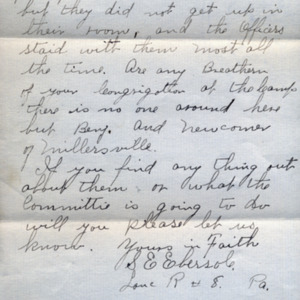 but they did not get up in
their room, and the officers
staid with them most all
the time. Are any Breathern
of your Congrigation at the Camps
there is no one around here
but Benj. and Newcomer
of Millersville.
If you find any thing out
about them or what the
Committie is going to do
will you please let us
know. Yours in Faith
S E Ebersole.
Lanc R # 8. Pa.